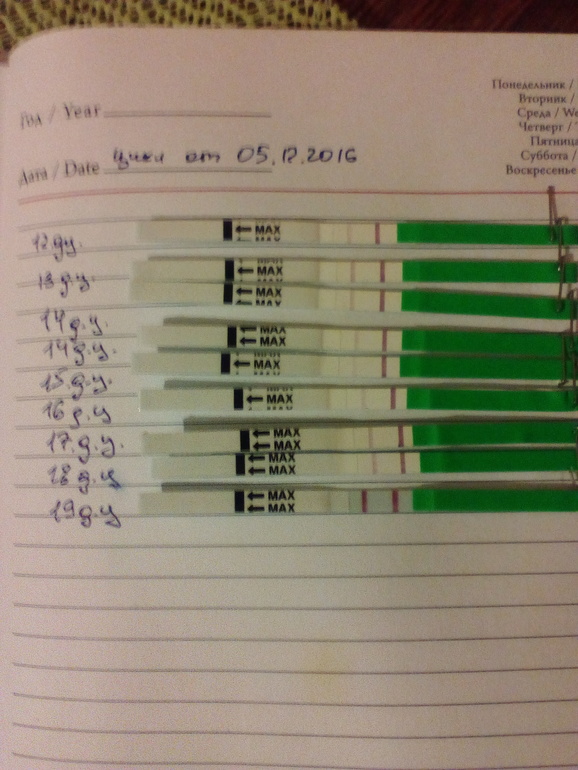 Год / Year
Дата / Date цикл от 05.12.2016
Понедельник /
Вторник /
Среда / We
Четверг / T
Пятница
Суббота /
Воскресенье
12 д.ц.
13 д.ц.
14 д.ц.
14 д.ц.
15 д.ц.
16 д.ц
17 д.ц.
18 д.ц
19 д.ц
← MAX
← MAX
← MAX
← MAX
← MAX
← MAX
← MAX
← MAX
← MAX
← MAX
← MAX